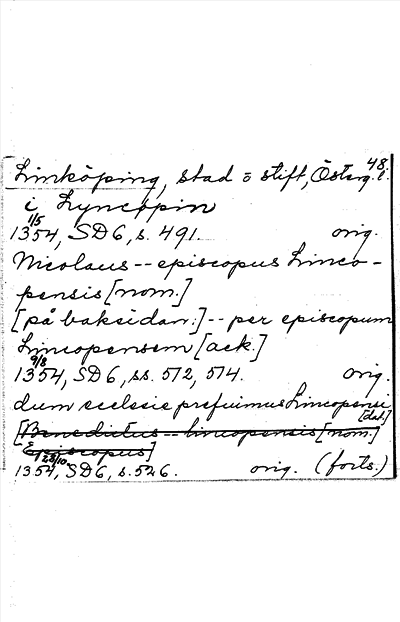 48.
Linköping, stad o stift, Österg. l.
i Lyncøpin
1/5
1354, SD6, s. 491. orig.
Nicolaus -- episcopus Linco-
pensis [nom.]
[på baksidan:] -- per episcopum
Lincopensem [ack.]
9/8
1354, SD6, ss. 512, 514. orig.
dum ecclesie prefuimus Lincopensi
[dat.]
[Benedictus -- lincopensis [nom.]
Episcopus]
28/10
1354, SD6, s. 526. orig. (forts.)